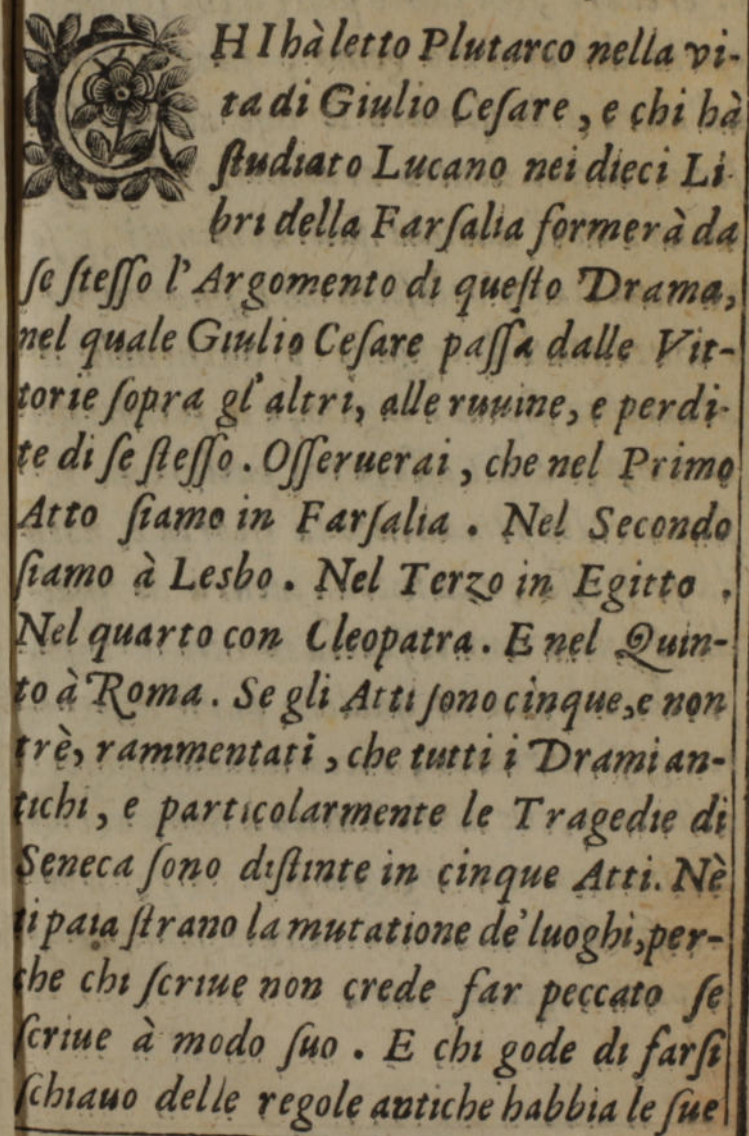 CHI hà letto Plutarco nella vi-
ta di Giulio Cesare, e chi hà
ſtudiato Lucano nei dieci Li-
bri della Farſalia formerà da
ſe ſteſſo l'Argomento di queſto Drama,
nel quale Giulio Ceſare paſſa dalle Vit-
torie ſopra gl'altri, alle ruuine, e perdi-
te di ſe ſteſſo. Oſſeruerai, che nel Primo
Atto ſiamo in Farſalia. Nel Secondo
ſiamo à Lesbo. Nel Terzo in Egitto.
Nel quarto con Cleopatra. E nel Quin-
to à Roma. Se gli Atti ſono cinque, e non
trè, rammentati, che tutti i Drami an-
tichi, e particolarmente le Tragedie di
Seneca ſono diſtinte in cinque Atti. Nè
ti paia ſtrano la mutatione de'luoghi, per-
che chi ſcriue non crede far peccato ſe
ſcriue à modo ſuo. E chi gode di farſi
ſchiauo delle regole antiche habbia le ſue